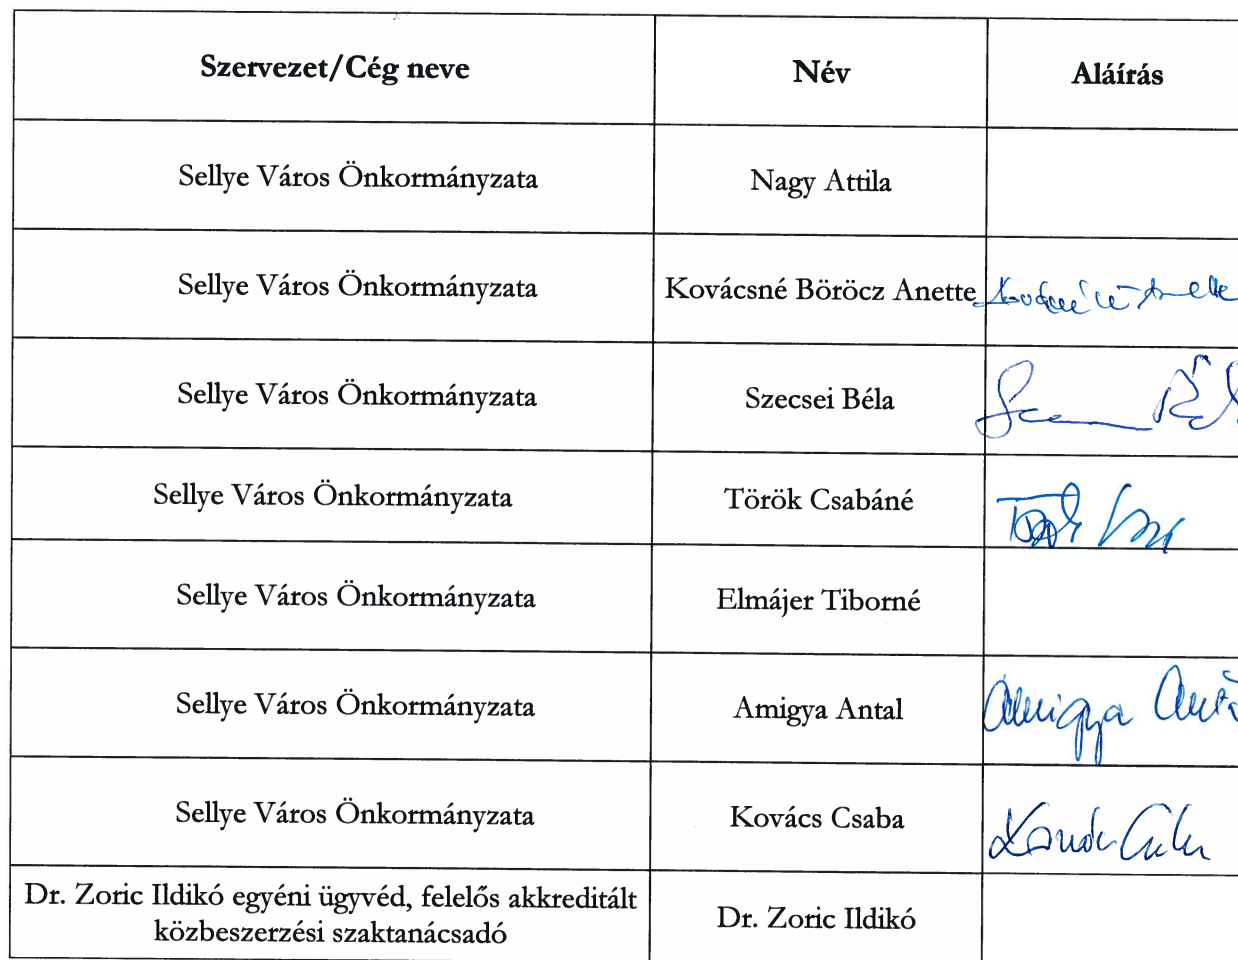 Szervezet/Cég neve Név Aláírás
Sellye Város Önkormányzata Nagy Attila
Sellye Város Önkormányzata Kovácsné Böröcz Anette
Sellye Város Önkormányzata Szecsei Béla
Sellye Város Önkormányzata Török Csabáné
Sellye Város Önkormányzata Elmájer Tiborné
Sellye Város Önkormányzata Amigya Antal Amigya
Sellye Város Önkormányzata Kovács Csaba
Dr. Zoric Ildikó egyéni ügyvéd, felelős akkreditált
közbeszerzési szaktanácsadó Dr. Zoric Ildikó